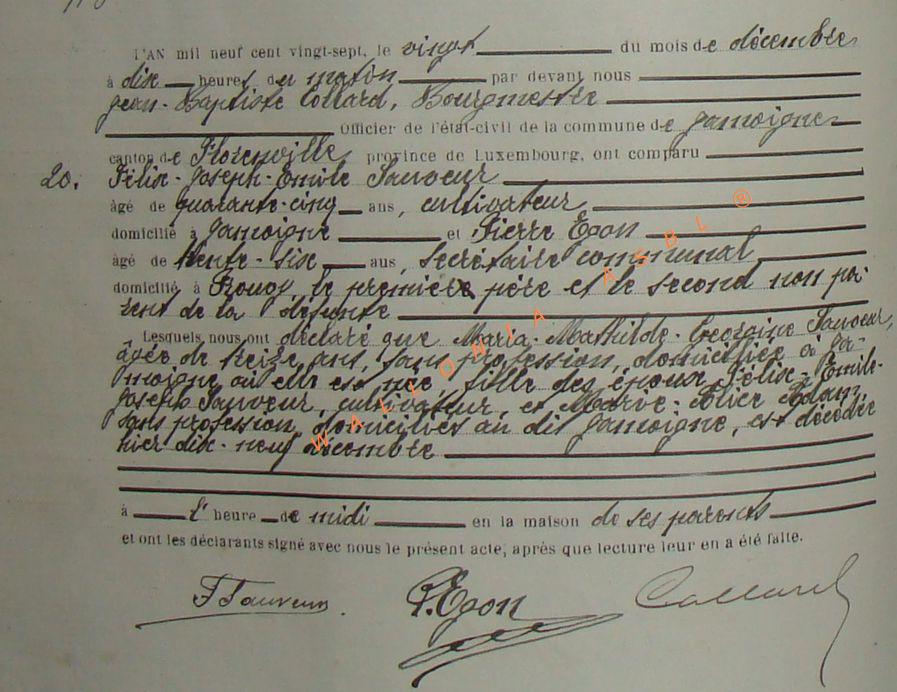 L'AN mil neuf cent vingt-sept, le vingt du mois de décembre
à dix heures du matin par devant nous
Jean-Baptiste Collard, Bourgmestre
Officier de l'état-civil de la commune de Jamoigne
canton de Florenville province de Luxembourg, ont comparu
20. Félix-Joseph-Emile Sauveur
âgé de quarante-cinq ans, cultivateur
domicilié à Jamoigne et Pierre Egon
âgé de trente-six ans, secrétaire communal
domicilié à Prouvy, le premier père et le second non pa-
rent de la défunte
Lesquels nous ont déclaré que Maria-Mathilde-Georgine Sauveur,
âgée de treize ans, sans profession, domiciliée à Ja-
moigne où elle est née, fille des époux Félix-Emile-
Joseph Sauveur, cultivateur, et Marie-Alice Adam,
sans profession, domiciliés au dit Jamoigne, est décédée
hier dix-neuf décembre
à l'heure de midi en la maison de ses parents
et ont les déclarants signé avec nous le présent acte, après que lecture leur en a été faite.
F Sauveur. P. Egon Collard
WALLONIA ASBL ®